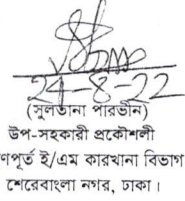 24-8-22
(সুলতানা পারভীন)
উপ-সহকারী প্রকৌশলী
ণপূর্ত ই/এম কারখানা বিভাগ
শেরেবাংলা নগর, ঢাকা।